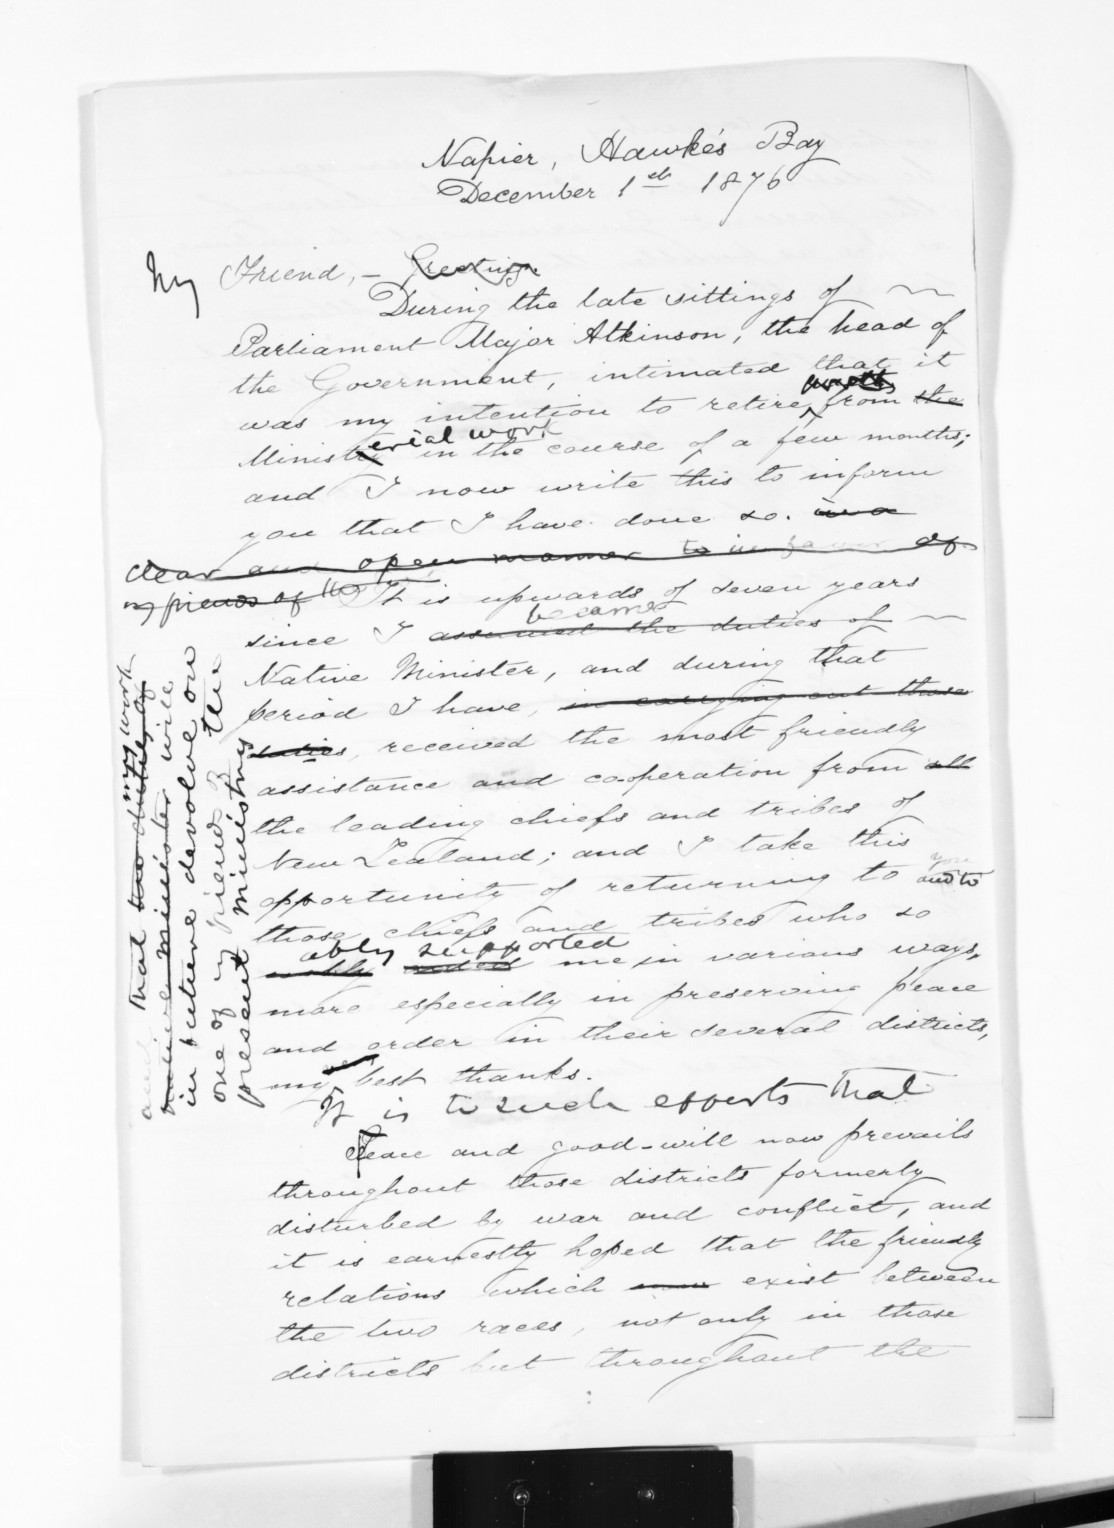 Napier, Hawke's Bay
December 1st 1876
My Friend, — Greeting
During the late sittings of
Parliament Major Atkinson, the head of
the Government, intimated that it
was my intention to retire from the
Ministry erial work in the course of a few months;
and I now write this to inform
you that I have done so. in a
clear and open manner to in favor of
my friends of the
It is upwards of seven years
became
since I assumed the duties of
Native Minister, and during that
period I have, in carrying out those
duties, received the most friendly
assistance and cooperation from all
the leading chiefs and tribes of
New Zealand; and I take this
opportunity of returning to you and to
those chiefs and tribes who so
ably supported
nobly aided me in various ways,
more especially in preserving peace
and order in their several districts,
my very best thanks.
It is to such efforts that
Peace and good-will now prevails
throughout those districts formerly
disturbed by war and conflict, and
it is earnestly hoped that the friendly
relations which now exist between
the two races, not only in those
districts but throughout the
my work
and that the duties of
native minister will
in future devolve on
one of my friends of the
present ministry